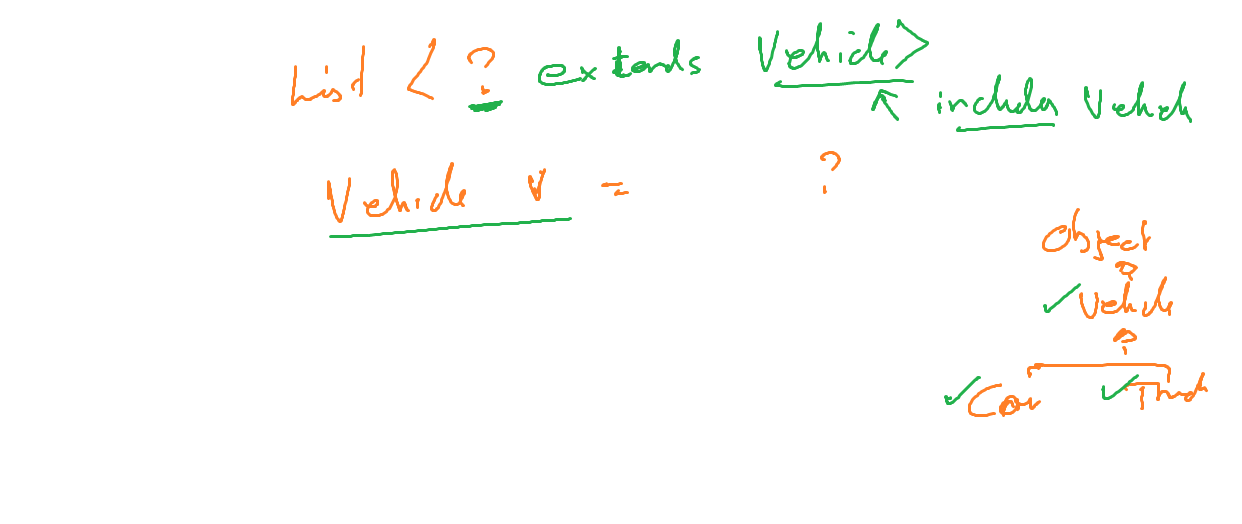 List < ? extends Vehicle>
includes Vehicle
Vehicle v = ?
Object
Vehicle
Car Truck